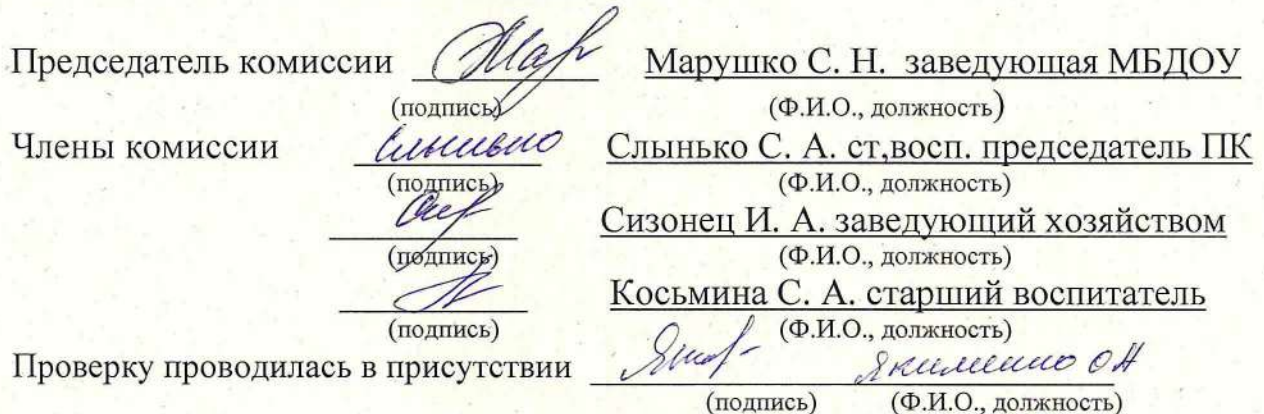 Председатель комиссии Марушко С. Н. заведующая МБДОУ
(подпись) (Ф.И.О., должность)
Члены комиссии Слынько Слынько С. А. ст,восп. председатель ПК
(подпись) (Ф.И.О., должность)
Сизонец И. А. заведующий хозяйством
(подпись) (Ф.И.О., должность)
Косьмина С. А. старший воспитатель
(подпись) (Ф.И.О., должность)
Проверку проводилась в присутствии Якименко ОН
(подпись) (Ф.И.О., должность)